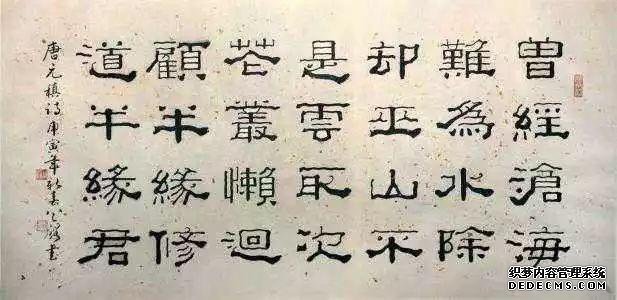 曾經滄海
難為水除
却巫山不
是雲取次
花叢懶迴
顧半緣修
道半緣君
唐元稹诗庚寅年
织梦内容管理系统
DEDECMS.COM